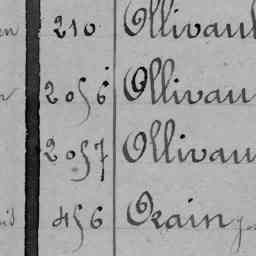 210 Ollivaul
2056 Ollivau
2057 Ollivau
456 Orain